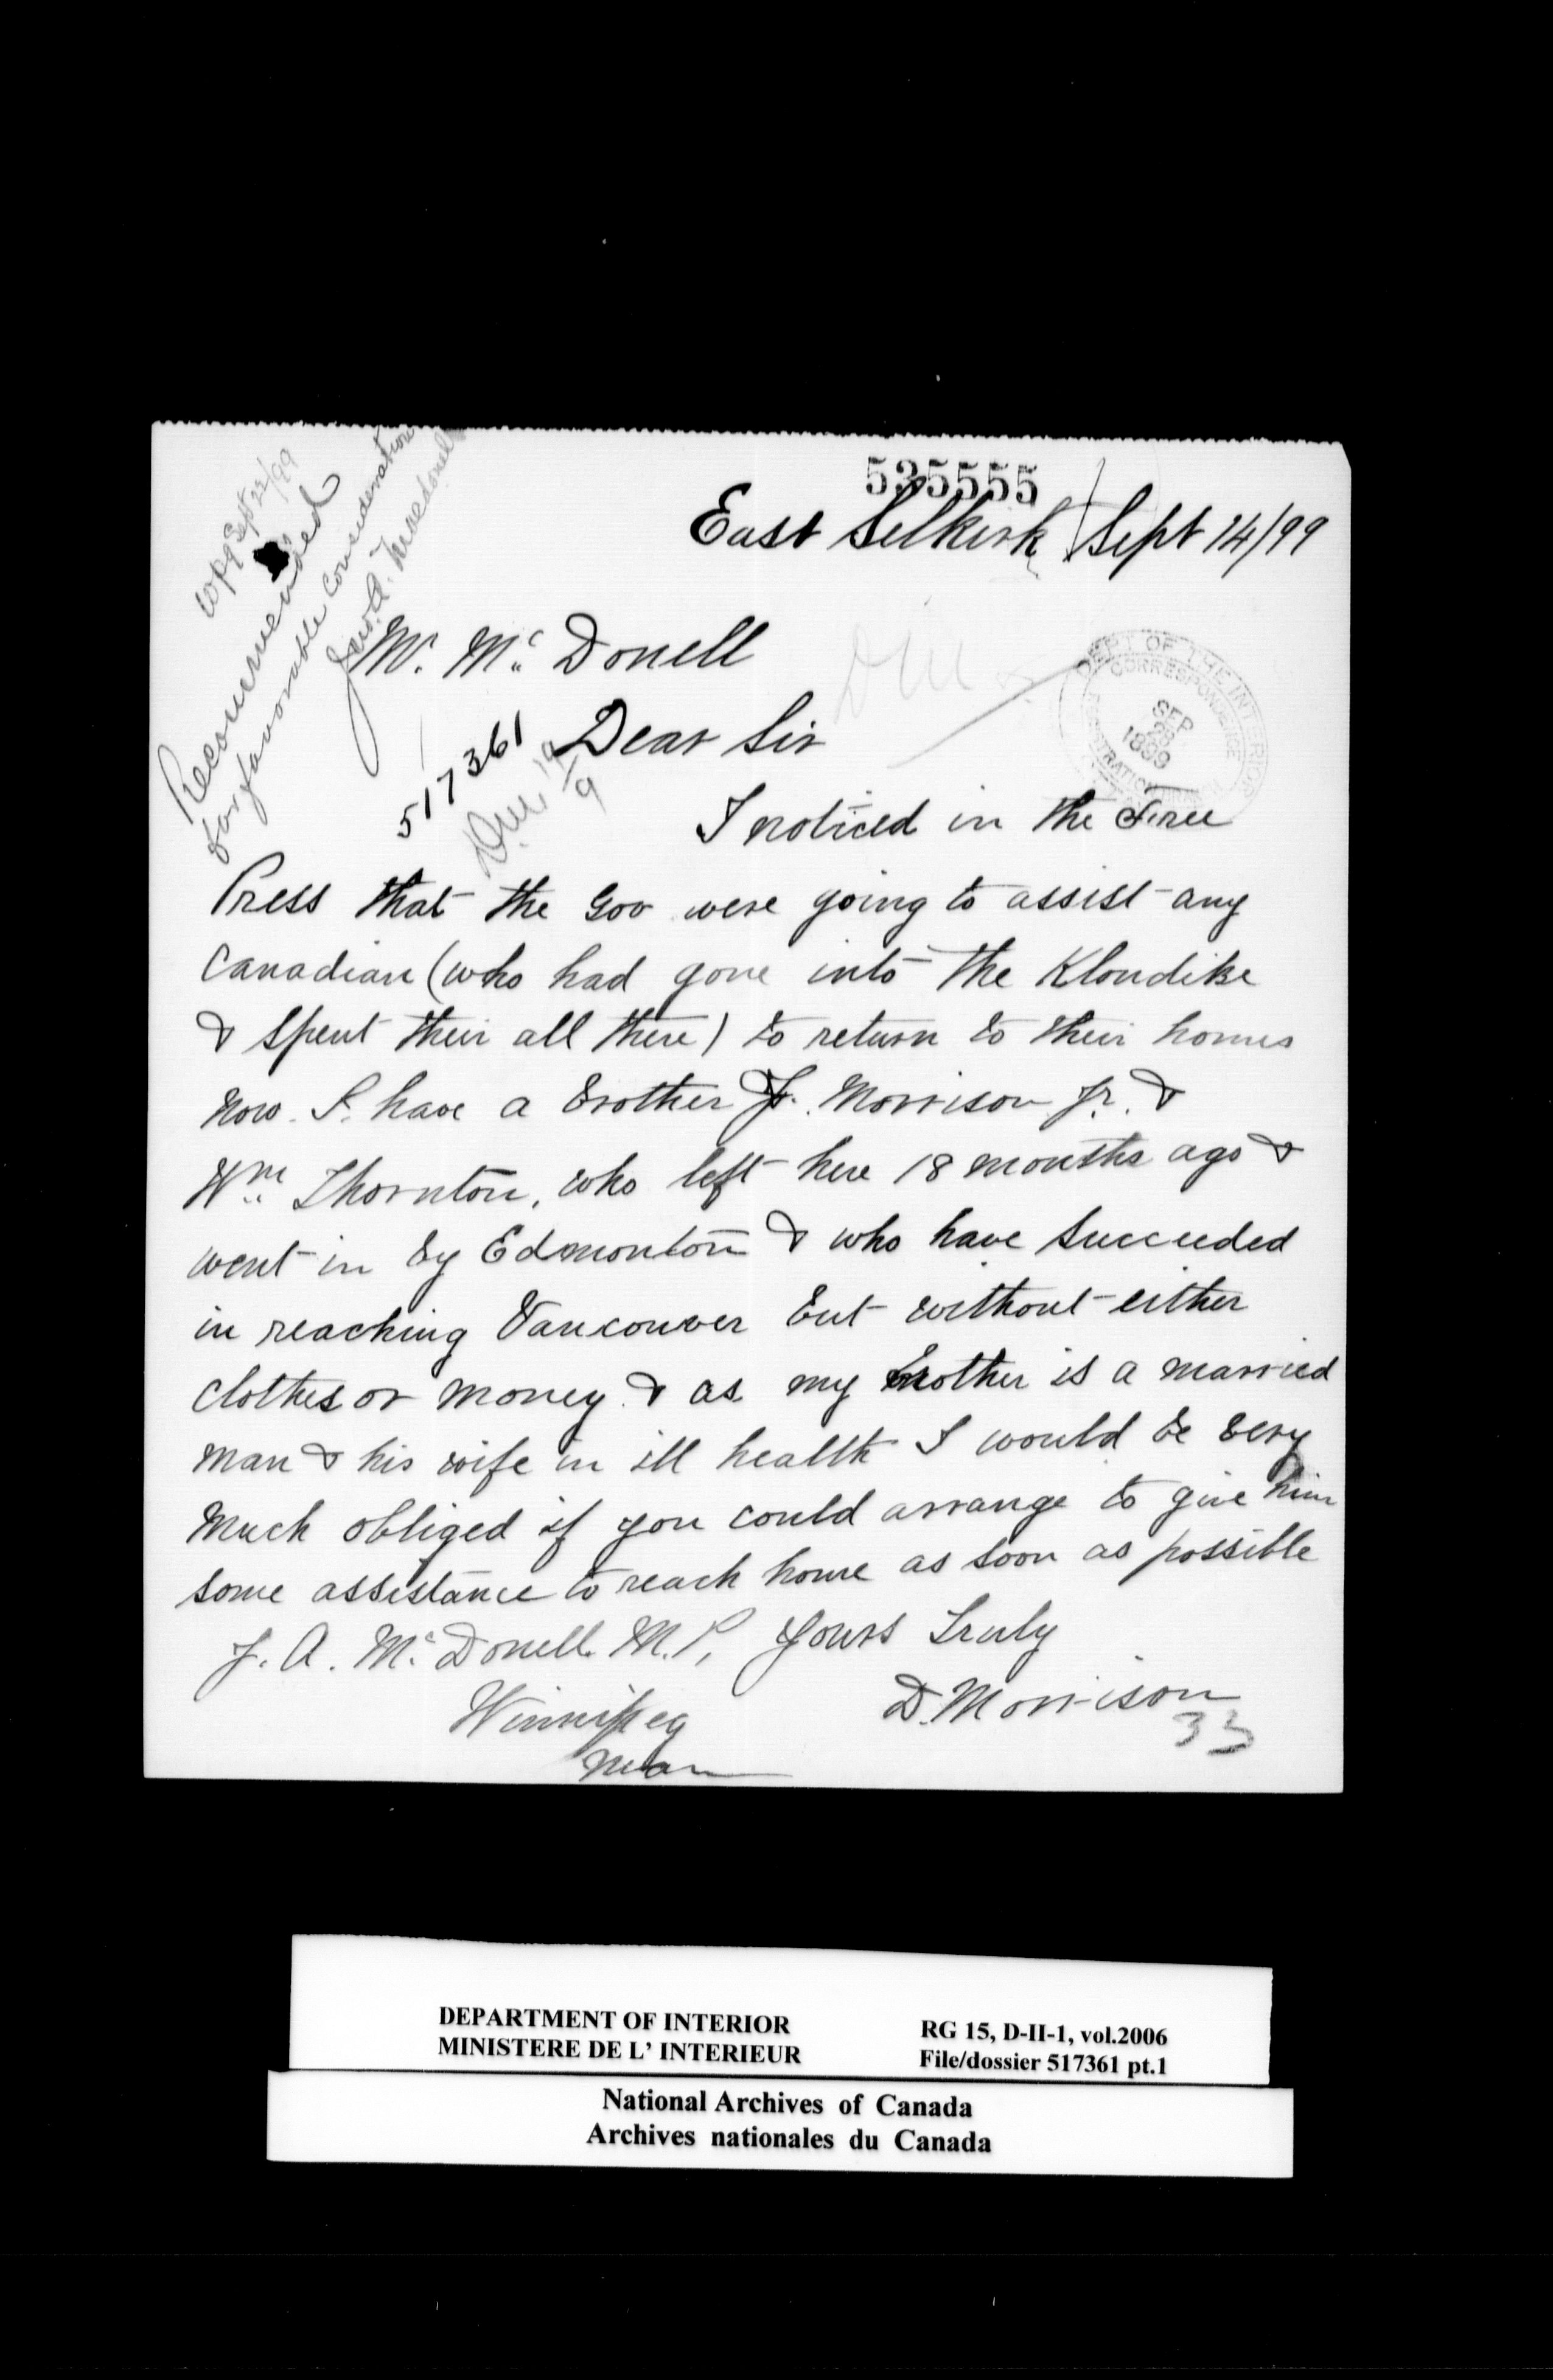 535555
East Selkirk Sept 14/99
Wpg Sept 22/99
Recommended
for favourable consideration
Jno. A. Macdonell
Mr. Mc Donell
517361
Dear Sir
DEPT OF THE INTERIOR
CORRESPONDENCE
SEP
1899
I noticed in the Free
Press that the Gov were going to assist any
Canadian (who had gone into the Klondike
& spent their all there) to return to their homes
now. I. have a brother J. Morrison Jr. &
Wm Thornton, who left here 18 months ago &
went in by Edmonton & who have succeeded
in reaching Vancouver but without either
clothes or money. & as my brother is a married
man & his wife in ill health I would be very
much obliged if you could arrange to give him
some assistance to reach home as soon as possible
J. A. Mc Donell. M.P, Yours Truly
Winnipeg D. Morrison
Man 33
DEPARTMENT OF INTERIOR RG 15, D-II-1, vol.2006
MINISTERE DE L' INTERIEUR File/dossier 517361 pt.1
National Archives of Canada
Archives nationales du Canada